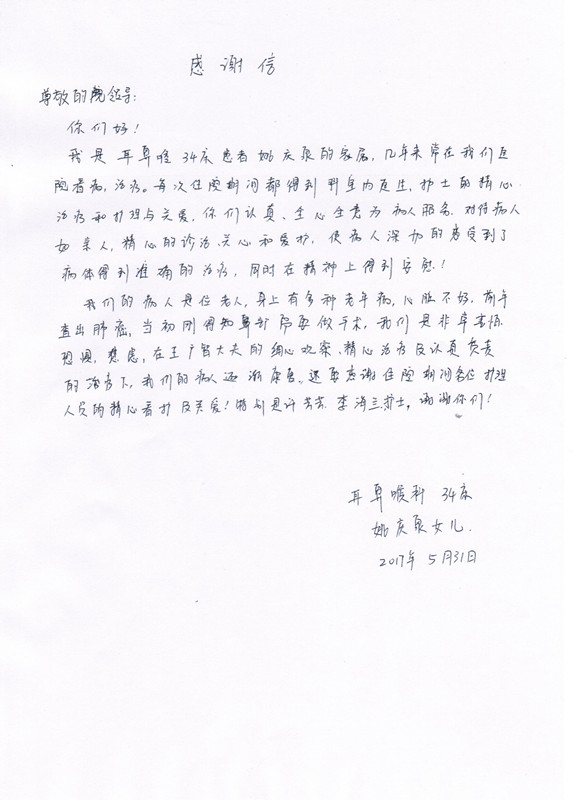 感谢信
尊敬的院领导:
你们好!
我是耳鼻喉34床患者姚庆泉的家属,几年来常在我们医
院看病,治疗。每次住院期间都得到科室内医生,护士的精心
治疗和护理与关爱,你们认真、全心全意为病人服务.对待病人
如亲人,精心的诊治、关心和爱护,使病人深切的感受到了
病体得到准确的治疗,同时在精神上得到安慰!
我们的病人是位老人,身上有多种老年病,心脏不好.前年
查出肺癌,当初刚得知鼻部须要做手术,我们是非常害怕
恐惧,焦虑,在王广智大夫的细心观察、精心治疗及认真负责
的治疗下,我们的病人逐渐康复。还要感谢住院期间各位护理
人员的精心看护及关爱!特别是许芸芸.李海兰护士,谢谢你们!
耳鼻喉科 34床
姚庆泉女儿.
2017年 5月31日